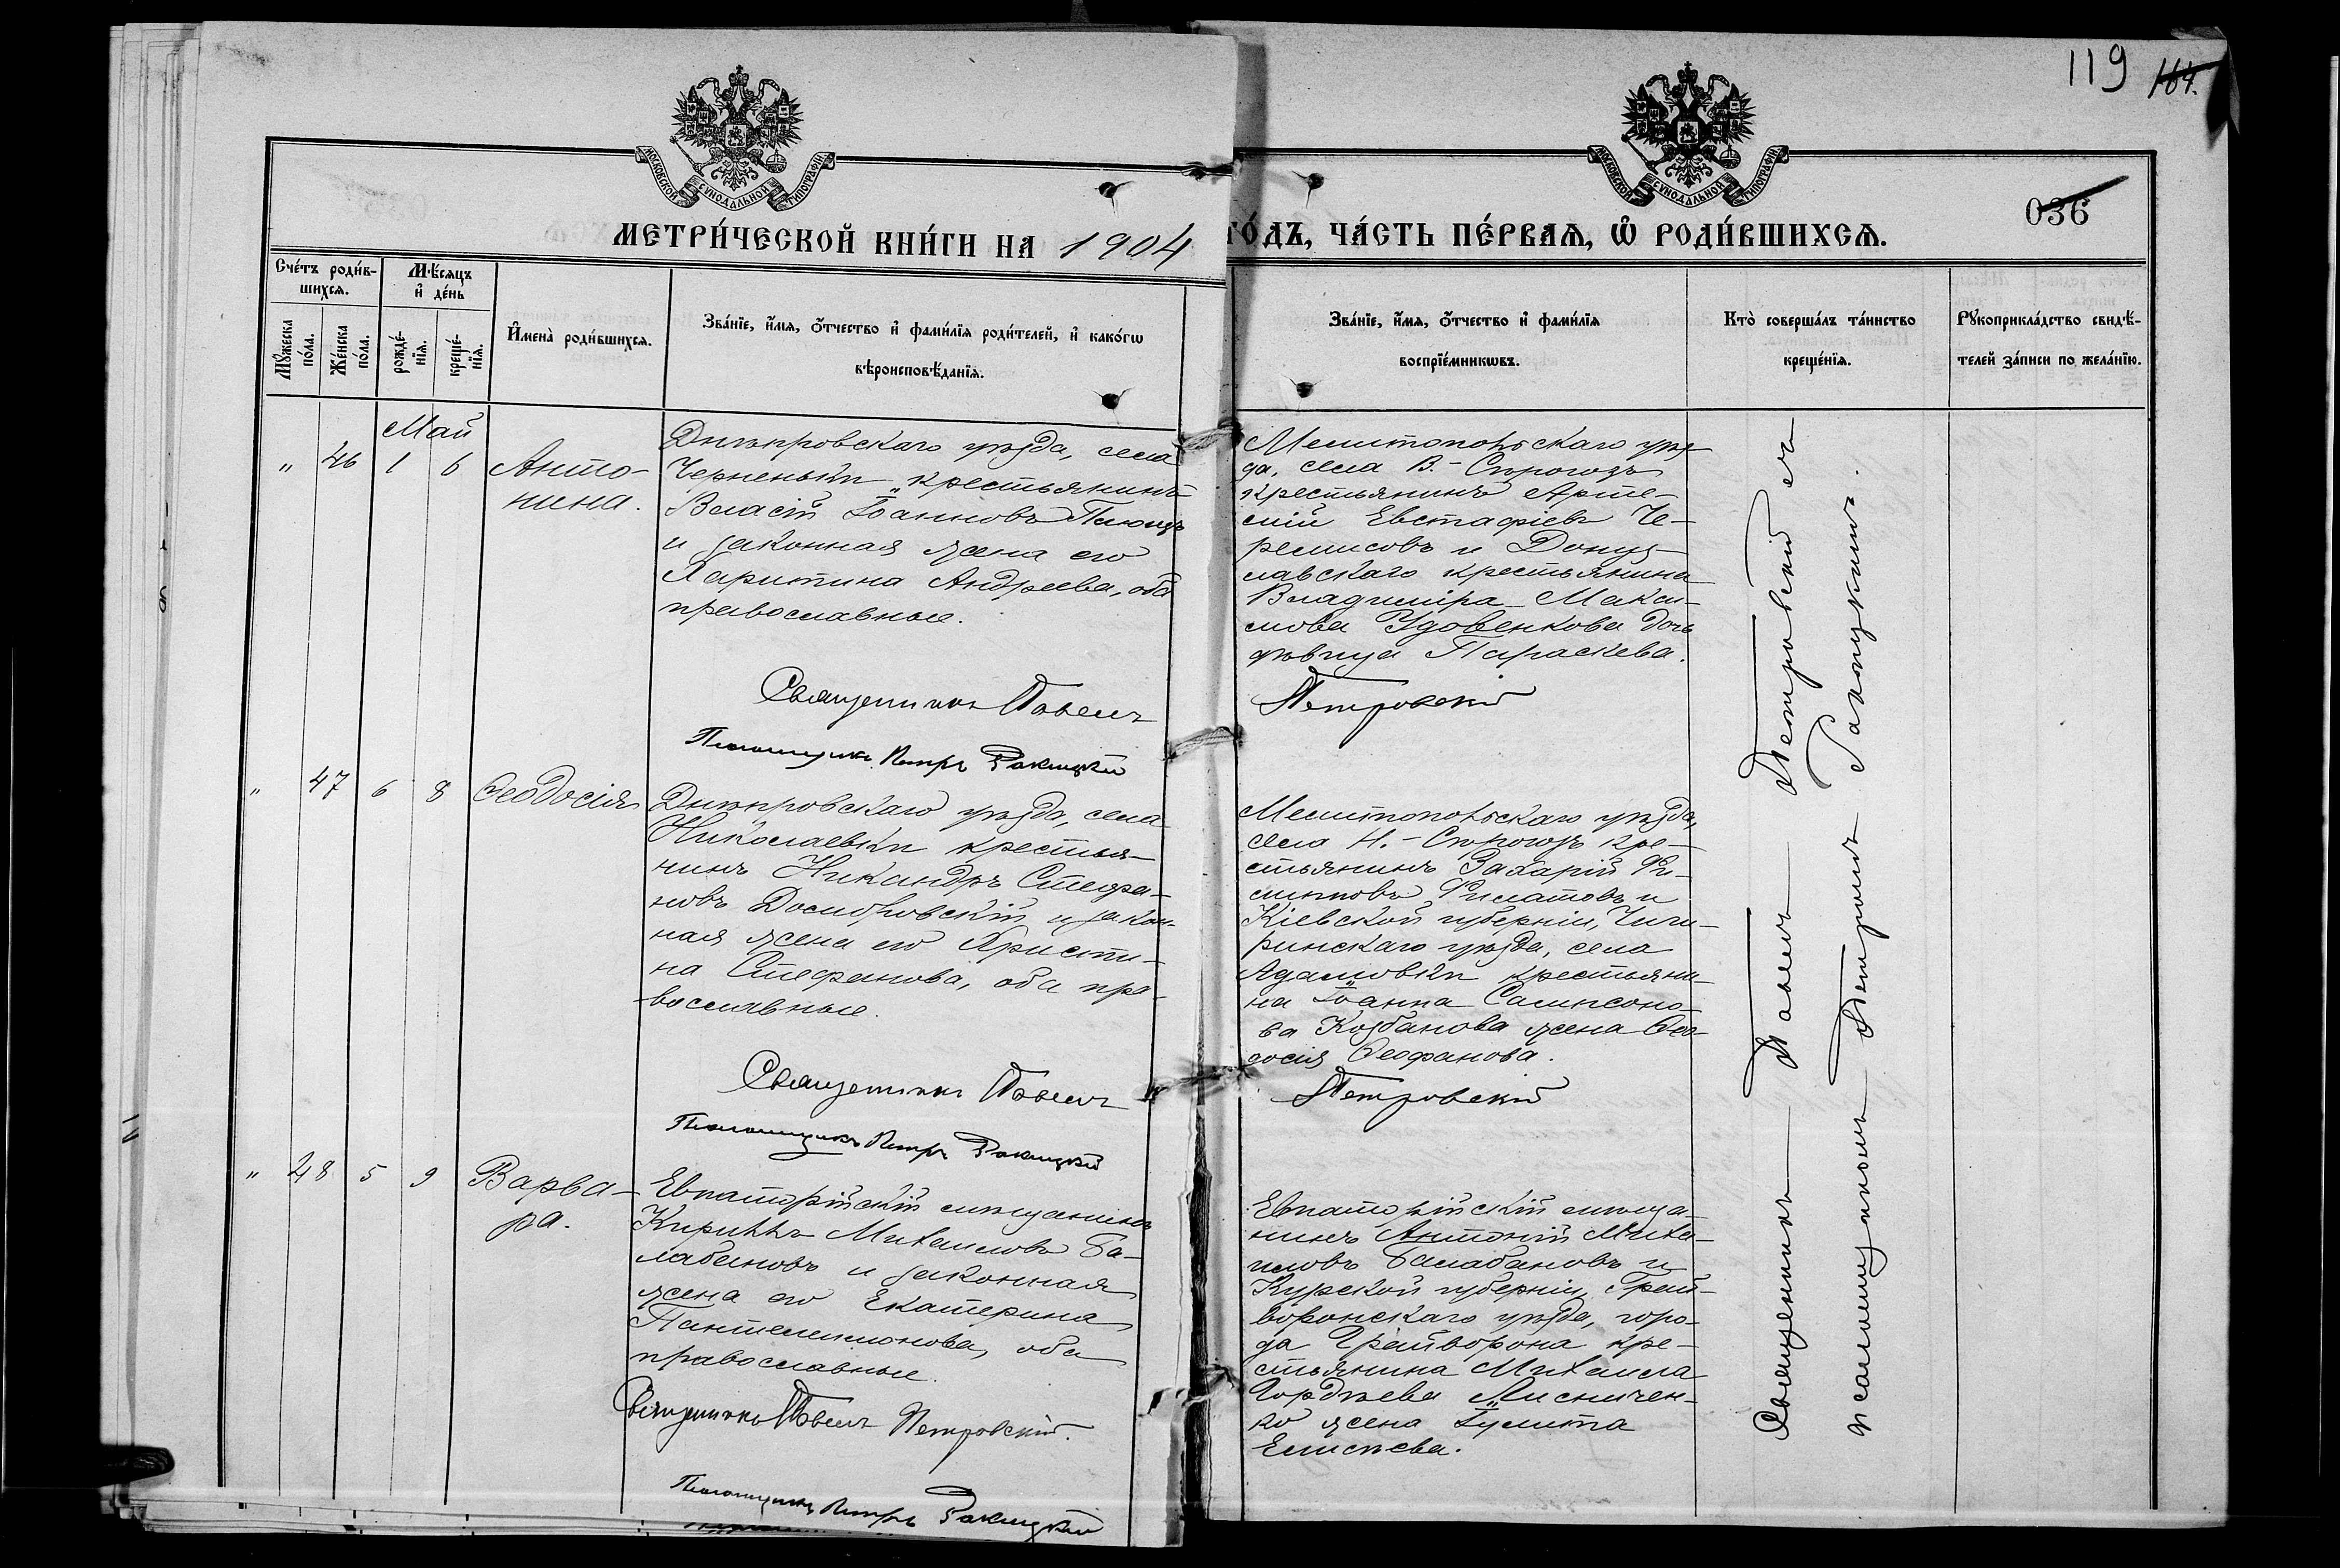 119 164.
МОСКОВСКОЙ СѴНОДАЛЬНОЙ ТИПОГРАФІИ
МОСКОВСКОЙ СѴНОДАЛЬНОЙ ТИПОГРАФІИ
036
МЕТРИ́ЧЕСКОЙ КНИ́ГИ НА 1904 ГО́ДЪ, ЧА́СТЬ ПЕ́РВАѦ, Ѡ҆ РОДИ́ВШИХСѦ.
Сче́тъ роди́в-
шихсѧ.
Мѣ́сѧцъ
и҆ де́нь
Мꙋ́жеска
по́ла.
Же́нска
по́ла.
рожде́-
нїѧ.
креще́-
нїѧ.
И҆мена̀ роди́вшихсѧ.
Зва́нїе, и҆́мѧ, ѻ҆́тчество и҆ фами́лїѧ роди́телей, и҆ како́гѡ
вѣроисповѣ́данїѧ.
Зва́нїе, и҆́мѧ, ѻ҆́тчество и҆ фами́лїѧ
воспрїе́мникѡвъ.
Кто̀ соверша́лъ та́инство
креще́нїѧ.
Рꙋкоприкла́дство свидѣ́-
телей за́писи по жела́нїю.
Май
" 46 1 6 Анто-
нина.
Днѣпровскаго уѣзда, села
Черненьки крестьянинъ
Власій Іоанновъ Плющъ
и законная жена его
Харитина Андреева, оба
православные.
Священникъ Павелъ
Псаломщикъ Петръ Ракицкій
Мелитопольскаго уѣз-
да, села В.-Сѣрогозъ
крестьянинъ Арте-
мій Евстафіевъ Че-
ремисовъ и Донуз-
лавскаго крестьянина
Владиміра Макси-
мова Удовенкова дочь
дѣвица Параскева.
Петровскій
" 47 6 8 Ѳеодосія
Днѣпровскаго уѣзда, села
Николаевки крестья-
нинъ Никандръ Стефа-
новъ Домбровскій и закон-
ная жена его Христи-
на Стефанова, оба пра-
вославные.
Священникъ Павелъ
Псаломщикъ Петръ Ракицкій
Мелитопольскаго уѣзда,
села Н.-Сѣрогозъ кре-
стьянинъ Захарій Фи-
липповъ Филатовъ и
Кіевской губерніи, Чиги-
ринскаго уѣзда, села
Адамовки крестьяни-
на Іоанна Сампсоно-
ва Козбанова жена Ѳео-
досія Ѳеофанова.
Петровскій
" 48 5 9 Варва-
ра.
Евпаторійскій мѣщанинъ
Кириллъ Михаиловъ Ба-
лабановъ и законная
жена его Екатерина
Пантелеимонова, оба
православные.
Священникъ Павелъ Петровскій.
Псаломщикъ Петръ Ракицкій
Евпаторійскій мѣща-
нинъ Антоній Миха-
иловъ Балабановъ и
Курской губерніи, Грай-
воронскаго уѣзда, горо-
да Грайворона кре-
стьянина Михаила
Гордѣева Лисничен-
ко жена Іулита
Елисѣева.
Священникъ Павелъ Петровскій съ
псаломщикомъ Петромъ Ракицкимъ.